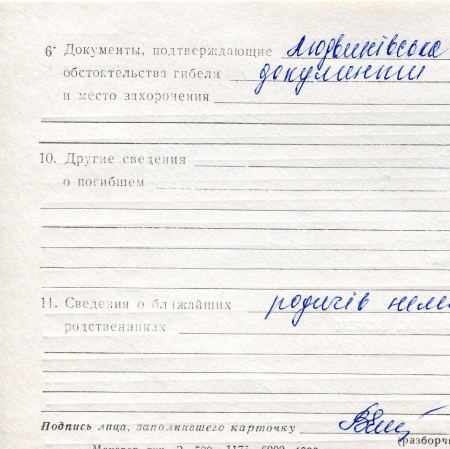 6· Документы, подтверждающие Людвинівська
обстоятельства гибели документи
и место захоронения
10. Другие сведения
о погибшем
11. Сведения о ближайших родичів нема
родственниках
Подпись лица, заполнившего карточку
(разборч